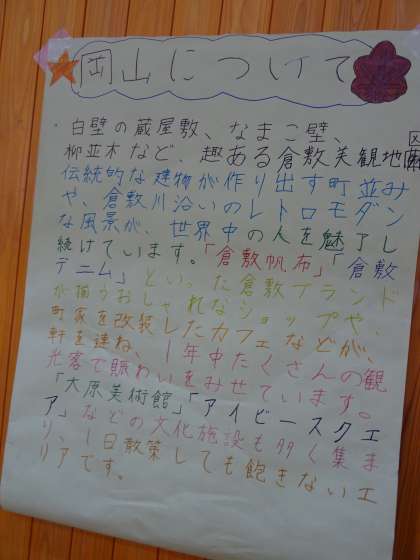 岡山について
・白壁の蔵屋敷、なまこ壁、
柳並木など、趣ある倉敷美観地区
伝統的な建物が作り出す町並み
や、倉敷川沿いのレトロモダン
な風景が、世界中の人を魅了し
続けています。「倉敷帆布」「倉敷
デニム」といった倉敷ブランド
が揃うおしゃれなショップや
町家を改装したカフェなどが、
軒を連ね、1年中たくさんの観
光客で賑わいをみせています。
「大原美術館」「アイビースクエ
ア」などの文化施設も多く集ま
り、1日散策しても飽きないエ
リアです。